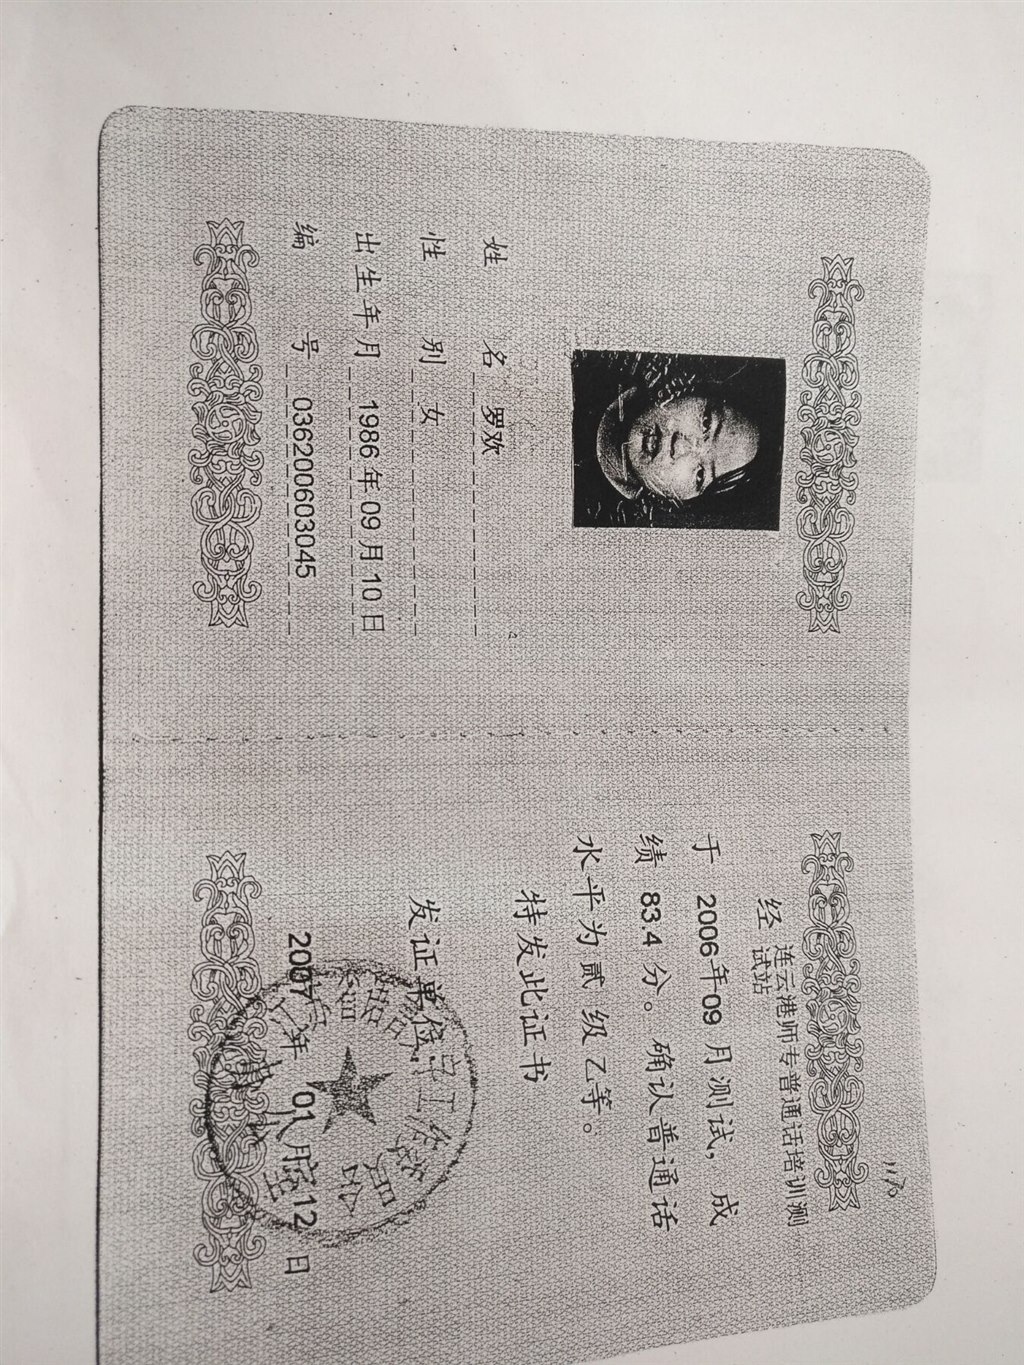 姓 名 罗欢
性 别 女
出生年月 1986年09月10日
编 号 036200603045
经 连云港师专普通话培训测试站
于 2006年09月测试，成
绩 83.4 分。确认普通话
水平为贰级乙等。
特发此证书
发证单位
2007年 01月12日